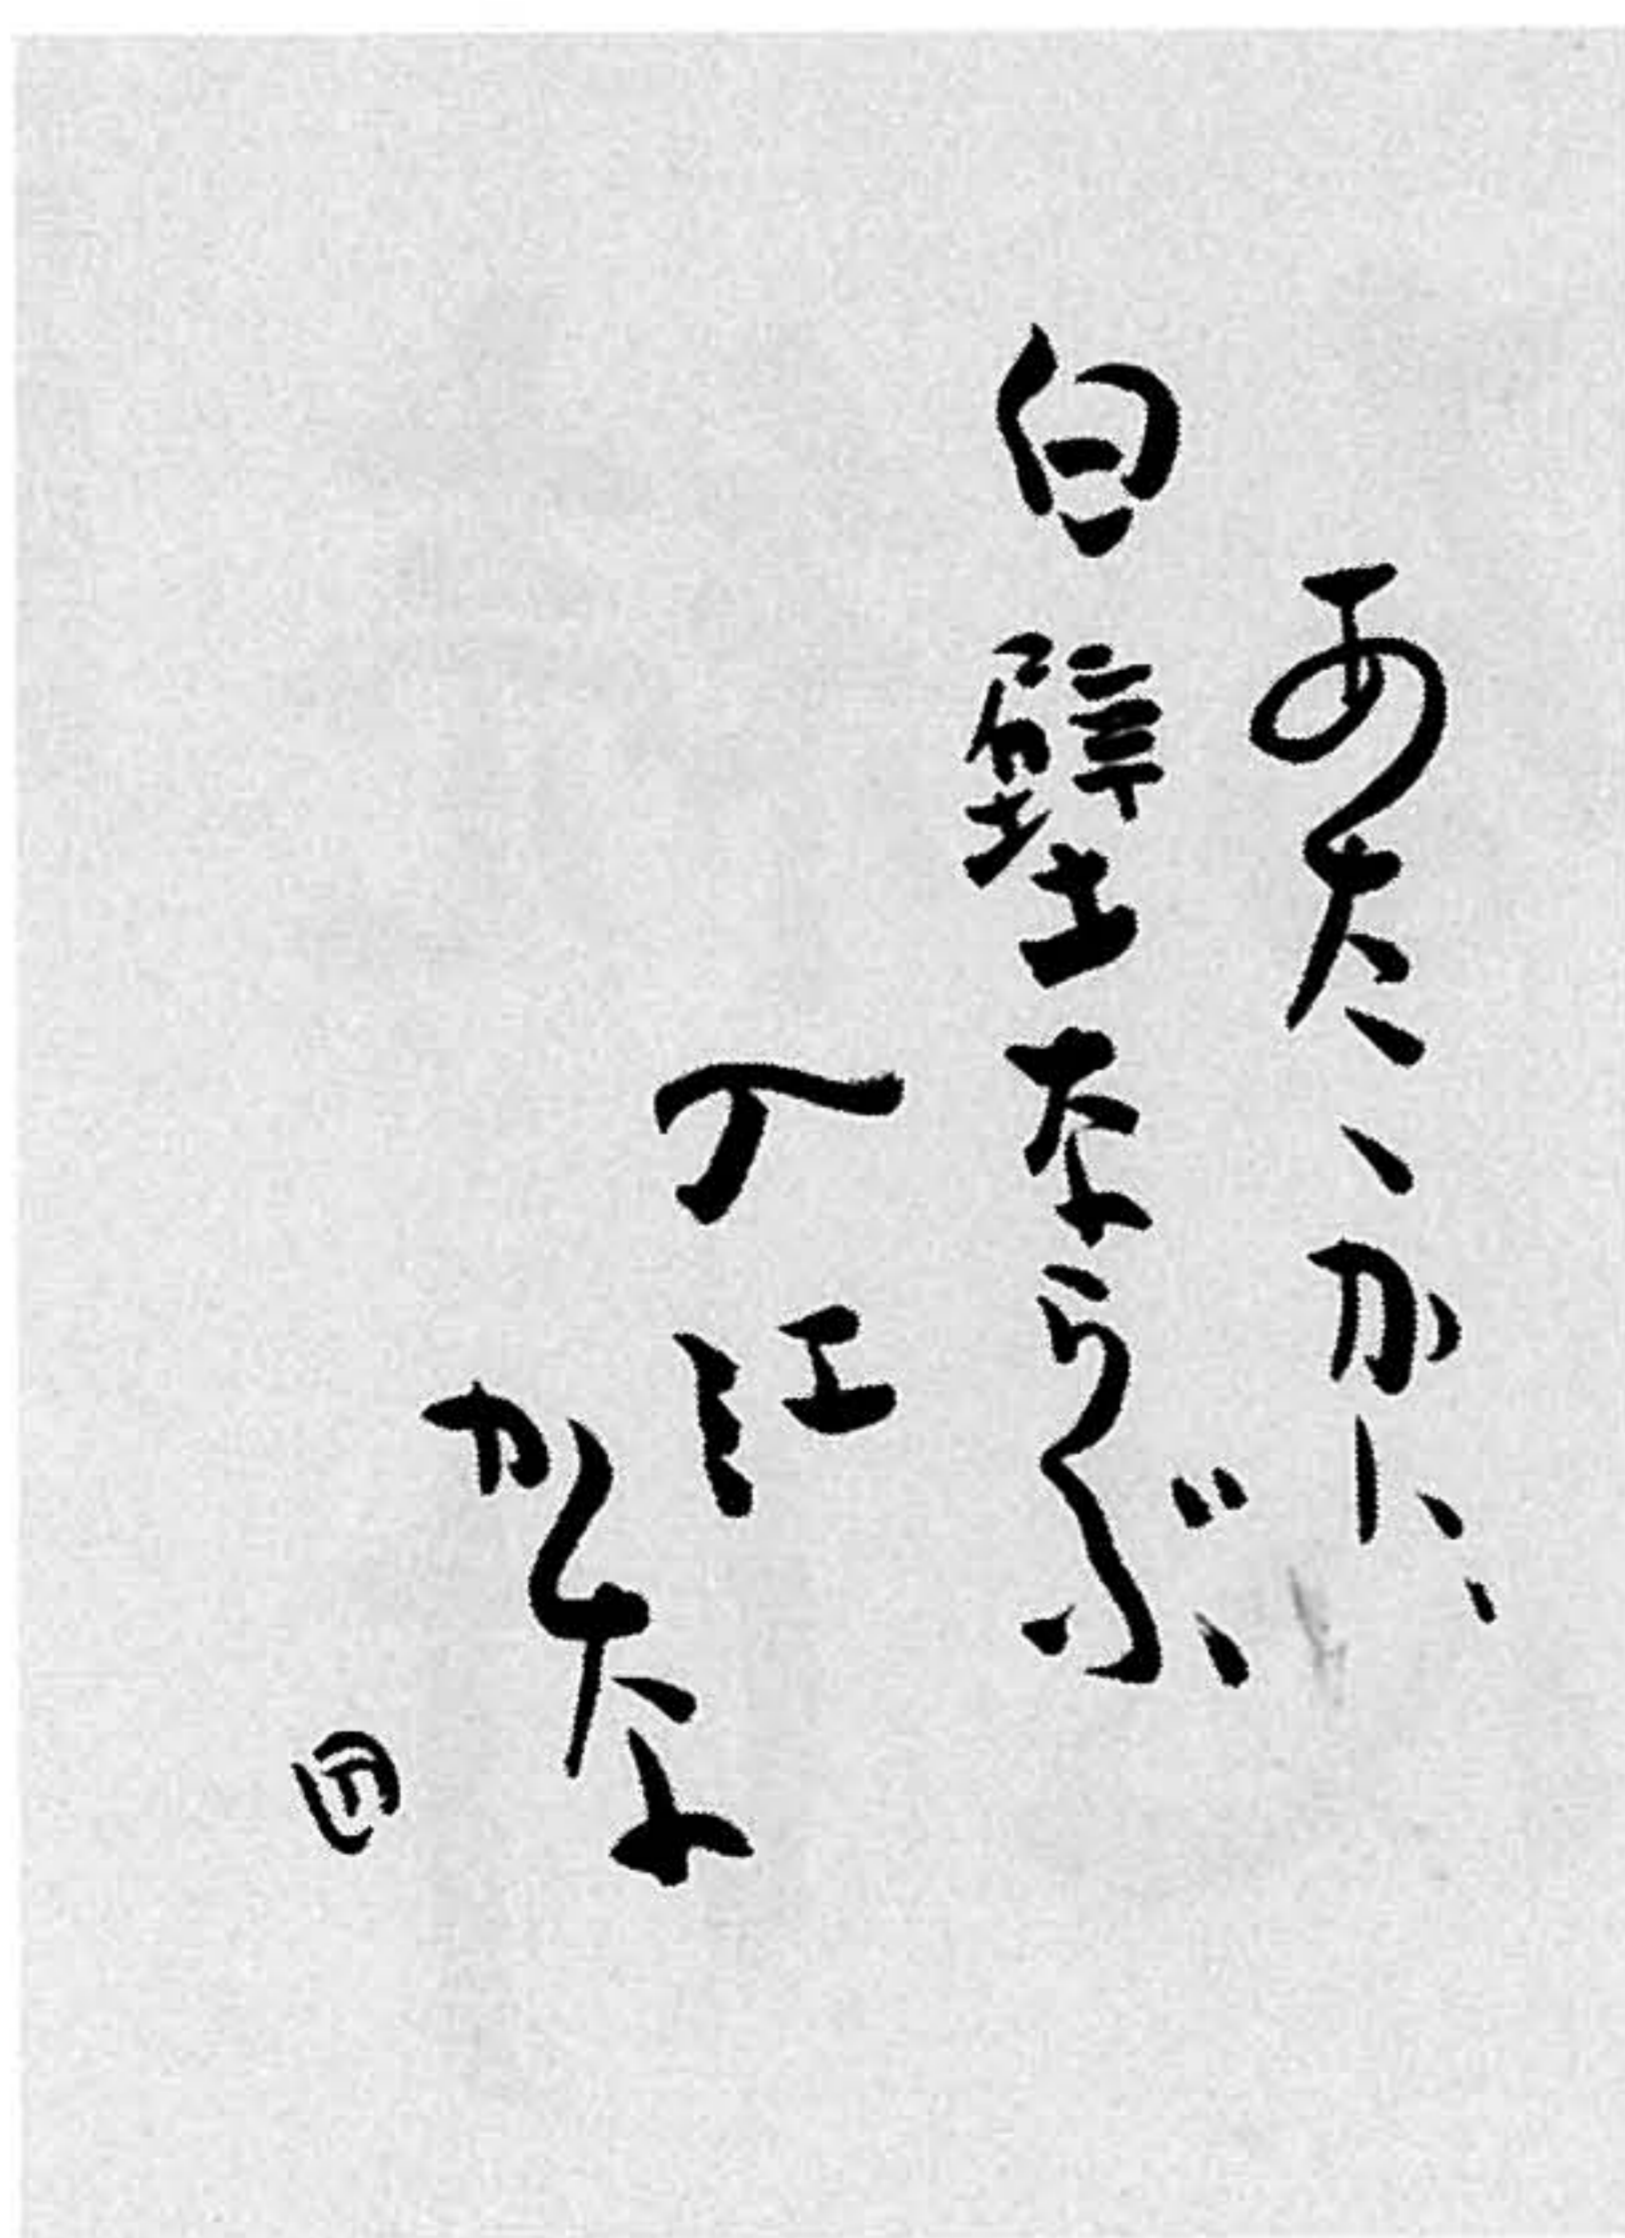 あたゝかに
白壁ならぶ
入江
かな